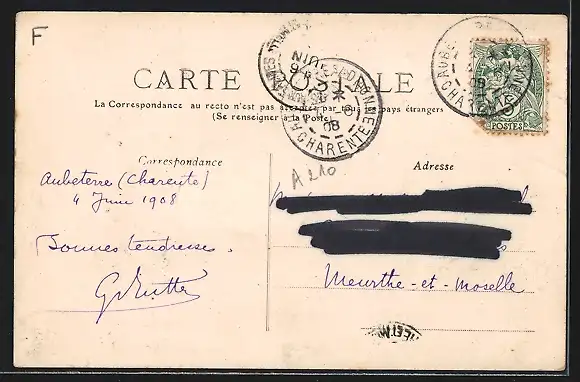 F
CARTE POSTALE
La Correspondance au recto n'est pas acceptée par tous les pays étrangers
(Se renseigner à la Poste)
POSTES
CHARENTE
08
CHARENTE
Correspondance
Adresse
Aubeterre (Charente)
4 Juin 1908
Bonnes tendresses.
Meurthe-et-Moselle